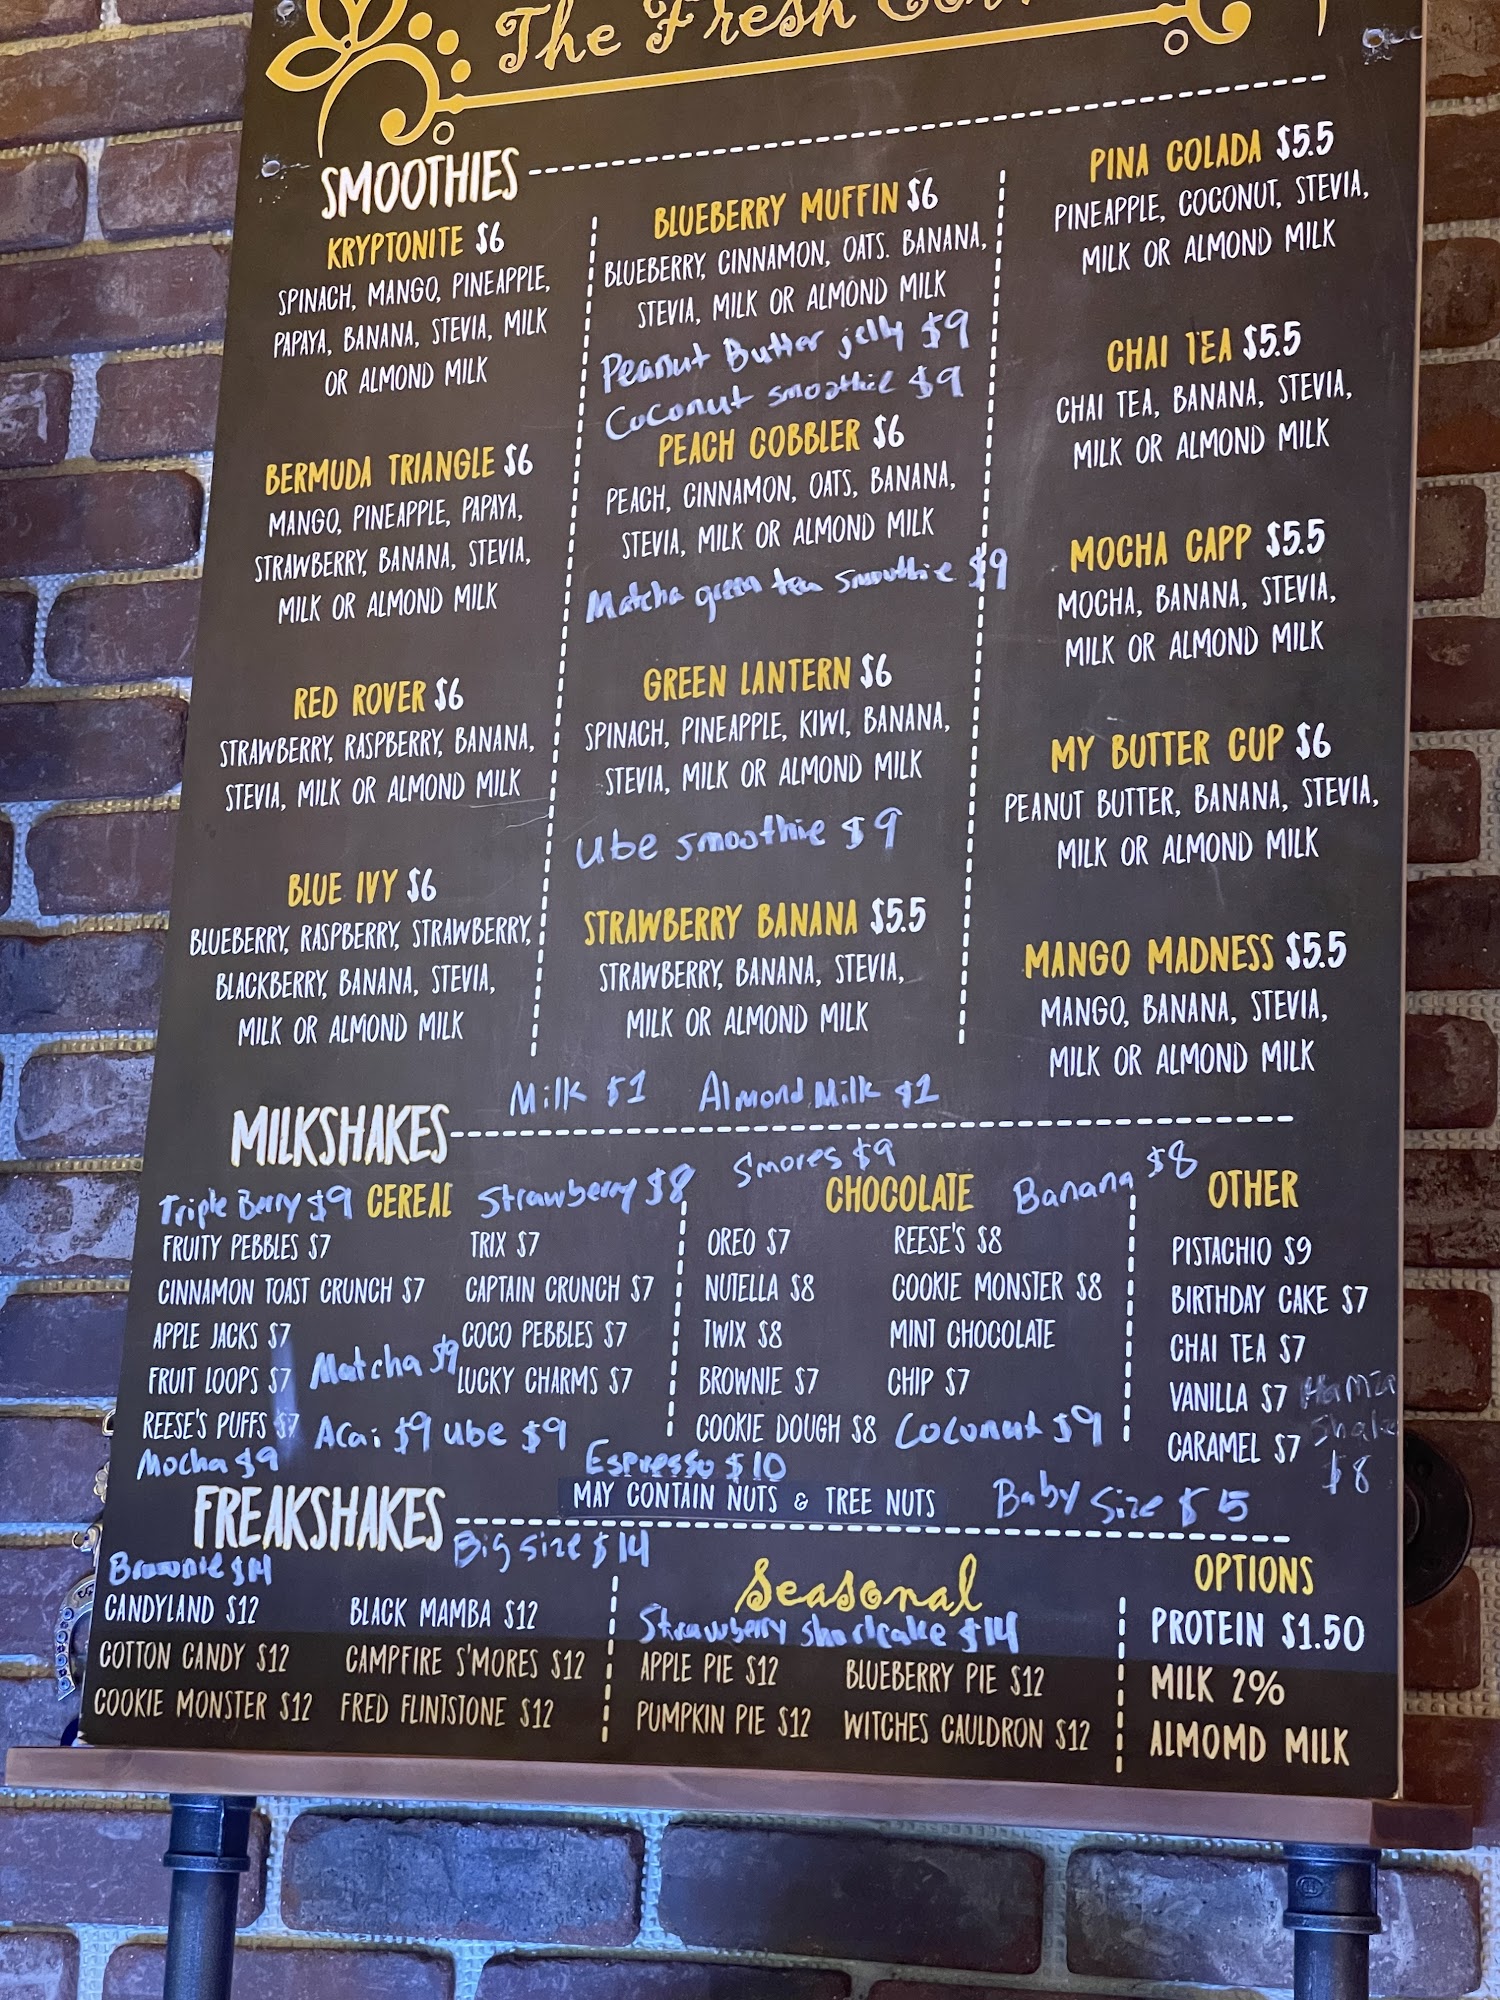 The Fresh
SMOOTHIES
KRYPTONITE $6
SPINACH, MANGO, PINEAPPLE,
PAPAYA, BANANA, STEVIA, MILK
OR ALMOND MILK
BERMUDA TRIANGLE $6
MANGO, PINEAPPLE, PAPAYA,
STRAWBERRY, BANANA, STEVIA,
MILK OR ALMOND MILK
RED ROVER $6
STRAWBERRY, RASPBERRY, BANANA,
STEVIA, MILK OR ALMOND MILK
BLUE IVY $6
BLUEBERRY, RASPBERRY, STRAWBERRY,
BLACKBERRY, BANANA, STEVIA,
MILK OR ALMOND MILK
BLUEBERRY MUFFIN $6
BLUEBERRY, CINNAMON, OATS. BANANA,
STEVIA, MILK OR ALMOND MILK
Peanut Butter jelly $9
Coconut smoothie $9
PEACH COBBLER $6
PEACH, CINNAMON, OATS, BANANA,
STEVIA, MILK OR ALMOND MILK
Matcha green tea smoothie $9
GREEN LANTERN $6
SPINACH, PINEAPPLE, KIWI, BANANA,
STEVIA, MILK OR ALMOND MILK
Ube smoothie $9
STRAWBERRY BANANA $5.5
STRAWBERRY, BANANA, STEVIA,
MILK OR ALMOND MILK
PINA COLADA $5.5
PINEAPPLE, COCONUT, STEVIA,
MILK OR ALMOND MILK
CHAI TEA $5.5
CHAI TEA, BANANA, STEVIA,
MILK OR ALMOND MILK
MOCHA CAPP $5.5
MOCHA, BANANA, STEVIA,
MILK OR ALMOND MILK
MY BUTTER CUP $6
PEANUT BUTTER, BANANA, STEVIA,
MILK OR ALMOND MILK
MANGO MADNESS $5.5
MANGO, BANANA, STEVIA,
MILK OR ALMOND MILK
Milk $1 Almond Milk $2
MILKSHAKES
Triple Berry $9 CEREAL Strawberry $8
FRUITY PEBBLES $7
CINNAMON TOAST CRUNCH $7
APPLE JACKS $7
FRUIT LOOPS $7
REESE'S PUFFS $7
Mocha $9
TRIX $7
CAPTAIN CRUNCH $7
COCO PEBBLES $7
LUCKY CHARMS $7
Matcha $9
Acai $9 Ube $9
Smores $9
CHOCOLATE Banana $8
OREO $7
NUTELLA $8
TWIX $8
BROWNIE $7
COOKIE DOUGH $8
REESE'S $8
COOKIE MONSTER $8
MINT CHOCOLATE
CHIP $7
Coconut $9
Espresso $10
MAY CONTAIN NUTS & TREE NUTS
OTHER
PISTACHIO $9
BIRTHDAY CAKE $7
CHAI TEA $7
VANILLA $7
CARAMEL $7
Hamza
Shake
$8
Baby Size $5
FREAKSHAKES
Big size $14
Brownie $14
CANDYLAND $12
COTTON CANDY $12
COOKIE MONSTER $12
BLACK MAMBA $12
CAMPFIRE S'MORES $12
FRED FLINTSTONE $12
Seasonal
Strawberry shortcake $14
APPLE PIE $12
PUMPKIN PIE $12
BLUEBERRY PIE $12
WITCHES CAULDRON $12
OPTIONS
PROTEIN $1.50
MILK 2%
ALMOMD MILK